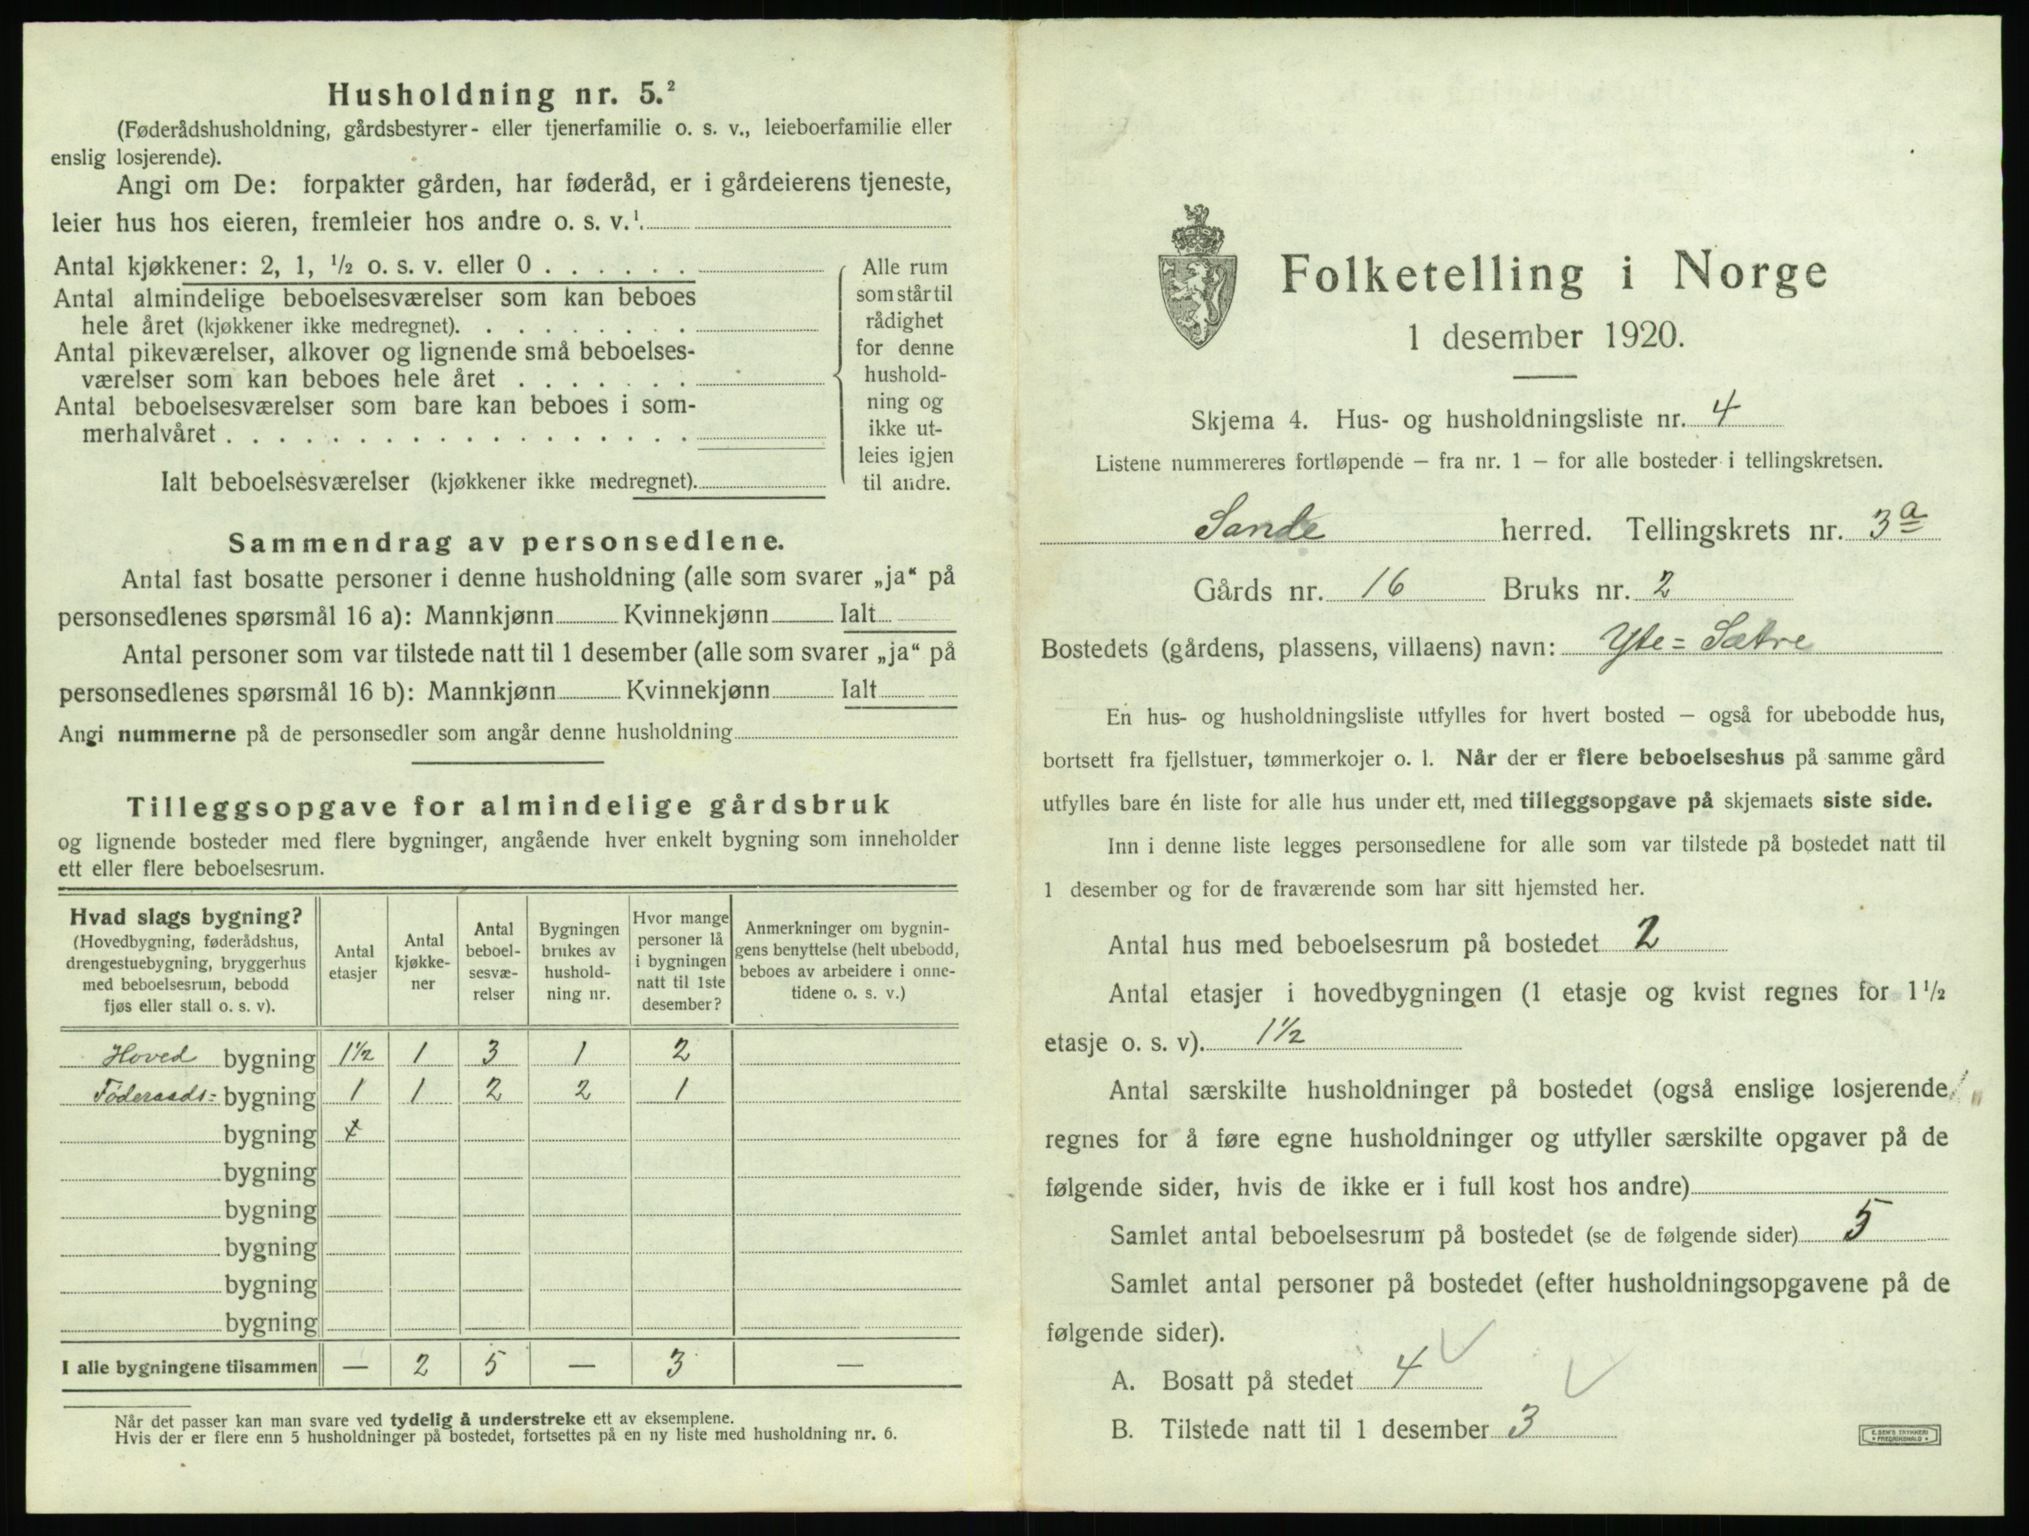 Husholdning nr. 5.²
(Føderådshusholdning, gårdsbestyrer- eller tjenerfamilie o. s. v., leieboerfamilie eller
enslig losjerende).
Angi om De: forpakter gården, har føderåd, er i gårdeierens tjeneste,
leier hus hos eieren, fremleier hos andre o. s. v.¹
Antal kjøkkener: 2, 1, ½ o. s. v. eller 0 . . . . . .
Antal almindelige beboelsesværelser som kan beboes
hele året (kjøkkener ikke medregnet). . . . . . . . .
Antal pikeværelser, alkover og lignende små beboelses-
værelser som kan beboes hele året . . . . . . .
Antal beboelsesværelser som bare kan beboes i som-
merhalvåret . . . . . . . . . . . . . . . . . .
Ialt beboelsesværelser (kjøkkener ikke medregnet)
Alle rum
som står til
rådighet
for denne
hushold-
ning og
ikke ut-
leies igjen
til andre.
Sammendrag av personsedlene.
Antal fast bosatte personer i denne husholdning (alle som svarer „ja“ på
personsedlenes spørsmål 16 a): Mannkjønn Kvinnekjønn Ialt
Antal personer som var tilstede natt til 1 desember (alle som svarer „ja“ på
personsedlenes spørsmål 16 b): Mannkjønn Kvinnekjønn Ialt
Angi nummerne på de personsedler som angår denne husholdning
Tilleggsopgave for almindelige gårdsbruk
og lignende bosteder med flere bygninger, angående hver enkelt bygning som inneholder
ett eller flere beboelsesrum.
Hvad slags bygning?
(Hovedbygning, føderådshus,
drengestuebygning, bryggerhus
med beboelsesrum, bebodd
fjøs eller stall o. s. v).
Antal
etasjer
Antal
kjøkke-
ner
Antal
beboel-
sesvæ-
relser
Bygningen
brukes av
hushold-
ning nr.
Hvor mange
personer lå
i bygningen
natt til 1ste
desember?
Anmerkninger om bygnin-
gens benyttelse (helt ubebodd,
beboes av arbeidere i onne-
tidene o. s. v.)
Hoved bygning 1½ 1 3 1 2
Föderaads= bygning 1 1 2 2 1
bygning
bygning
bygning
bygning
bygning
bygning
I alle bygningene tilsammen — 2 5 — 3 —
Når det passer kan man svare ved tydelig å understreke ett av eksemplene.
Hvis der er flere enn 5 husholdninger på bostedet, fortsettes på en ny liste med husholdning nr. 6.
Folketelling i Norge
1 desember 1920.
Skjema 4. Hus- og husholdningsliste nr. 4
Listene nummereres fortløpende — fra nr. 1 — for alle bosteder i tellingskretsen.
Sande herred. Tellingskrets nr. 3a
Gårds nr. 16 Bruks nr. 2
Bostedets (gårdens, plassens, villaens) navn: Yte=Sætre
En hus- og husholdningsliste utfylles for hvert bosted — også for ubebodde hus,
bortsett fra fjellstuer, tømmerkojer o. l. Når der er flere beboelseshus på samme gård
utfylles bare én liste for alle hus under ett, med tilleggsopgave på skjemaets siste side.
Inn i denne liste legges personsedlene for alle som var tilstede på bostedet natt til
1 desember og for de fraværende som har sitt hjemsted her.
Antal hus med beboelsesrum på bostedet 2
Antal etasjer i hovedbygningen (1 etasje og kvist regnes for 1½
etasje o. s. v). 1½
Antal særskilte husholdninger på bostedet (også enslige losjerende
regnes for å føre egne husholdninger og utfyller særskilte opgaver på de
følgende sider, hvis de ikke er i full kost hos andre)
Samlet antal beboelsesrum på bostedet (se de følgende sider) 5
Samlet antal personer på bostedet (efter husholdningsopgavene på de
følgende sider).
A. Bosatt på stedet 4
B. Tilstede natt til 1 desember 3